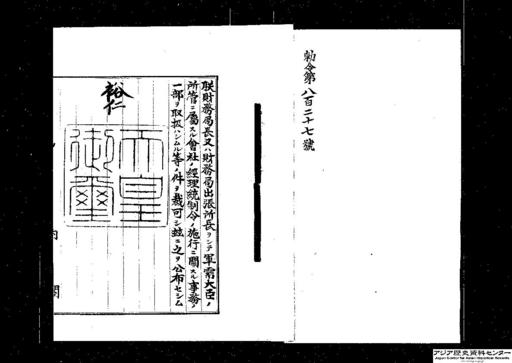 勅令第八百二十七號
朕財務局長又ハ財務局出張所長ヲシテ軍需大臣ノ
所管ニ屬スル會社ノ經理統制令ノ施行ニ關スル事務ノ
一部ヲ取扱ハシムル等ノ件ヲ裁可シ玆ニ之ヲ公布セシム
裕仁
天皇
御璽
内
閣
アジア歴史資料センター
Japan Center for Asian Historical Records